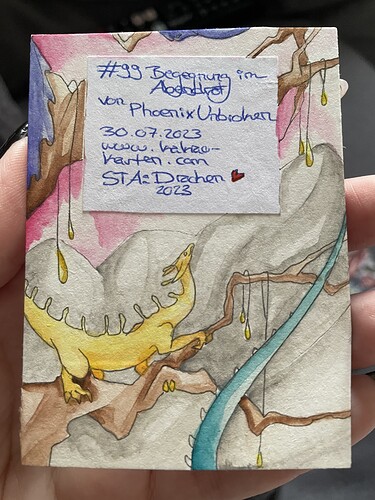 #99 Begegnung im
Abendrot
von PhoenixUnbroken
30.07.2023
www.kakao-
karten.com
STA: Drachen
2023